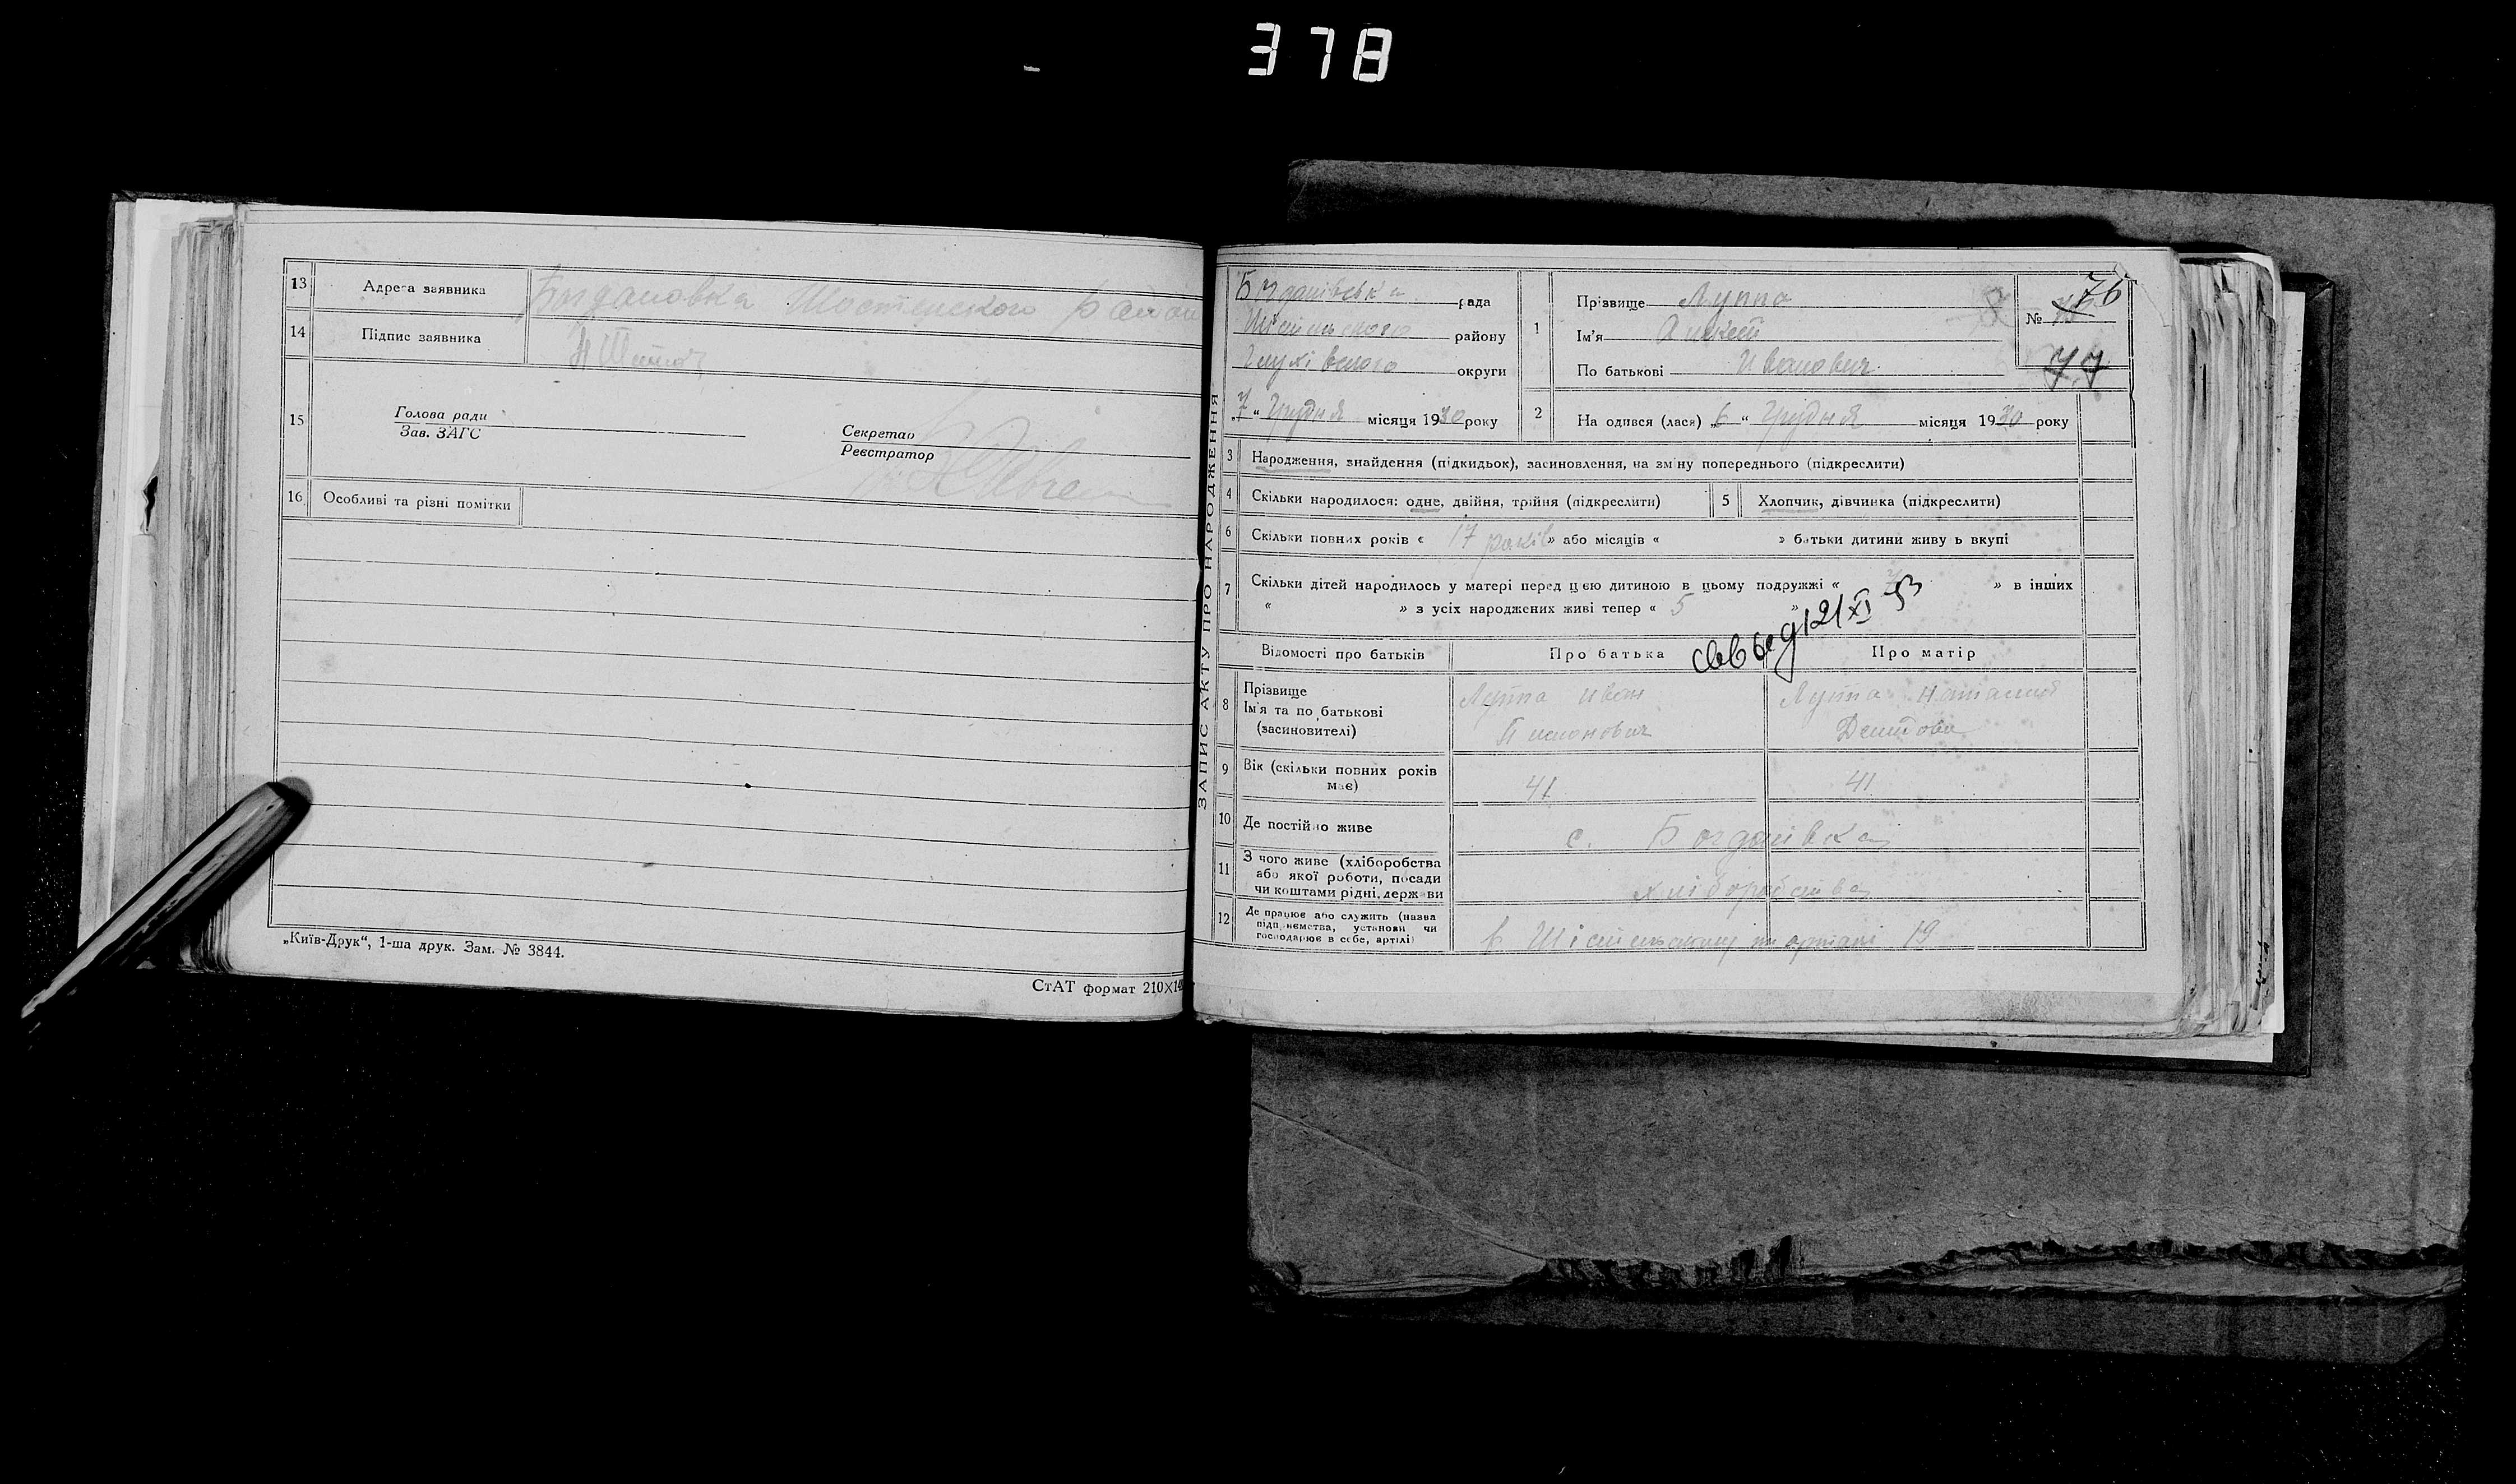 378
13 Адреса заявника Богдановка Шостенского района
14 Підпис заявника
15 Голова ради
Зав. ЗАГС
Секретар
Реєстратор
16 Особливі та різні помітки
„Київ-Друк“, 1-ша друк. Зам. № 3844.
СтАТ формат 210×14
ЗАПИС АКТУ ПРО НАРОДЖЕННЯ
Богданівська рада
району
Глухівського округи
„7“ Грудня місяця 1930 року
1 Прізвище Луппа
Ім'я
По батькові Иванович
№ 76
77
2 На одився (лася) „6“ Грудня місяця 1930 року
3 Народження, знайдення (підкидьок), засиновлення, на зміну попереднього (підкреслити)
4 Скільки народилося: одне, двійня, трійня (підкреслити)
5 Хлопчик, дівчинка (підкреслити)
6 Скільки повних років « 17 років » або місяців « » батьки дитини живу ь вкупі
7 Скільки дітей народилось у матері перед цією дитиною в цьому подружжі « 7 » в інших
« » з усіх народжених живі тепер « 5 »
21 XI 53
Відомості про батьків Про батька Про матір
8 Прізвище
Ім'я та по батькові
(засиновителі)
Луппа Иван
Луппа Наталия
Демидовн
9 Вік (скільки повних років має) 41 41
10 Де постійно живе с. Богданівка
11 З чого живе (хліборобства
або якої роботи, посади
чи коштами рідні, держави
хліборобства
12 Де працює або служить (назва
підприємства, установи чи
господарює в себе, артілі)
в артілі 19